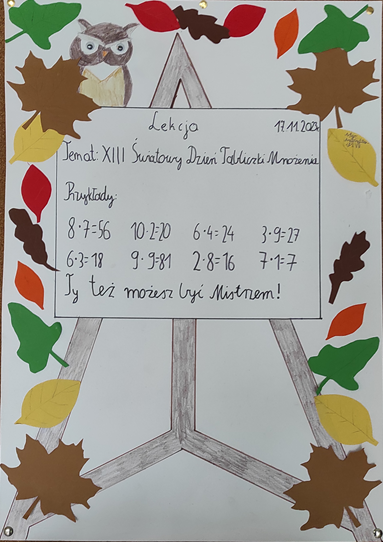 Lekcja 17.11.2023
Temat: XIII Światowy Dzień Tabliczki Mnożenia
Przykłady:
8·7=56 10·2=20 6·4=24 3·9=27
6·3=18 9·9=81 2·8=16 7·1=7
Ty też możesz być Mistrzem!